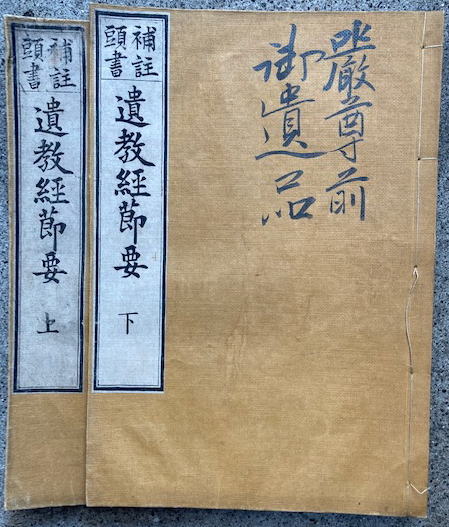 厳尊前
御遺品
補註
頭書
遺教經節要
下
補註
頭書
遺教經節要
上